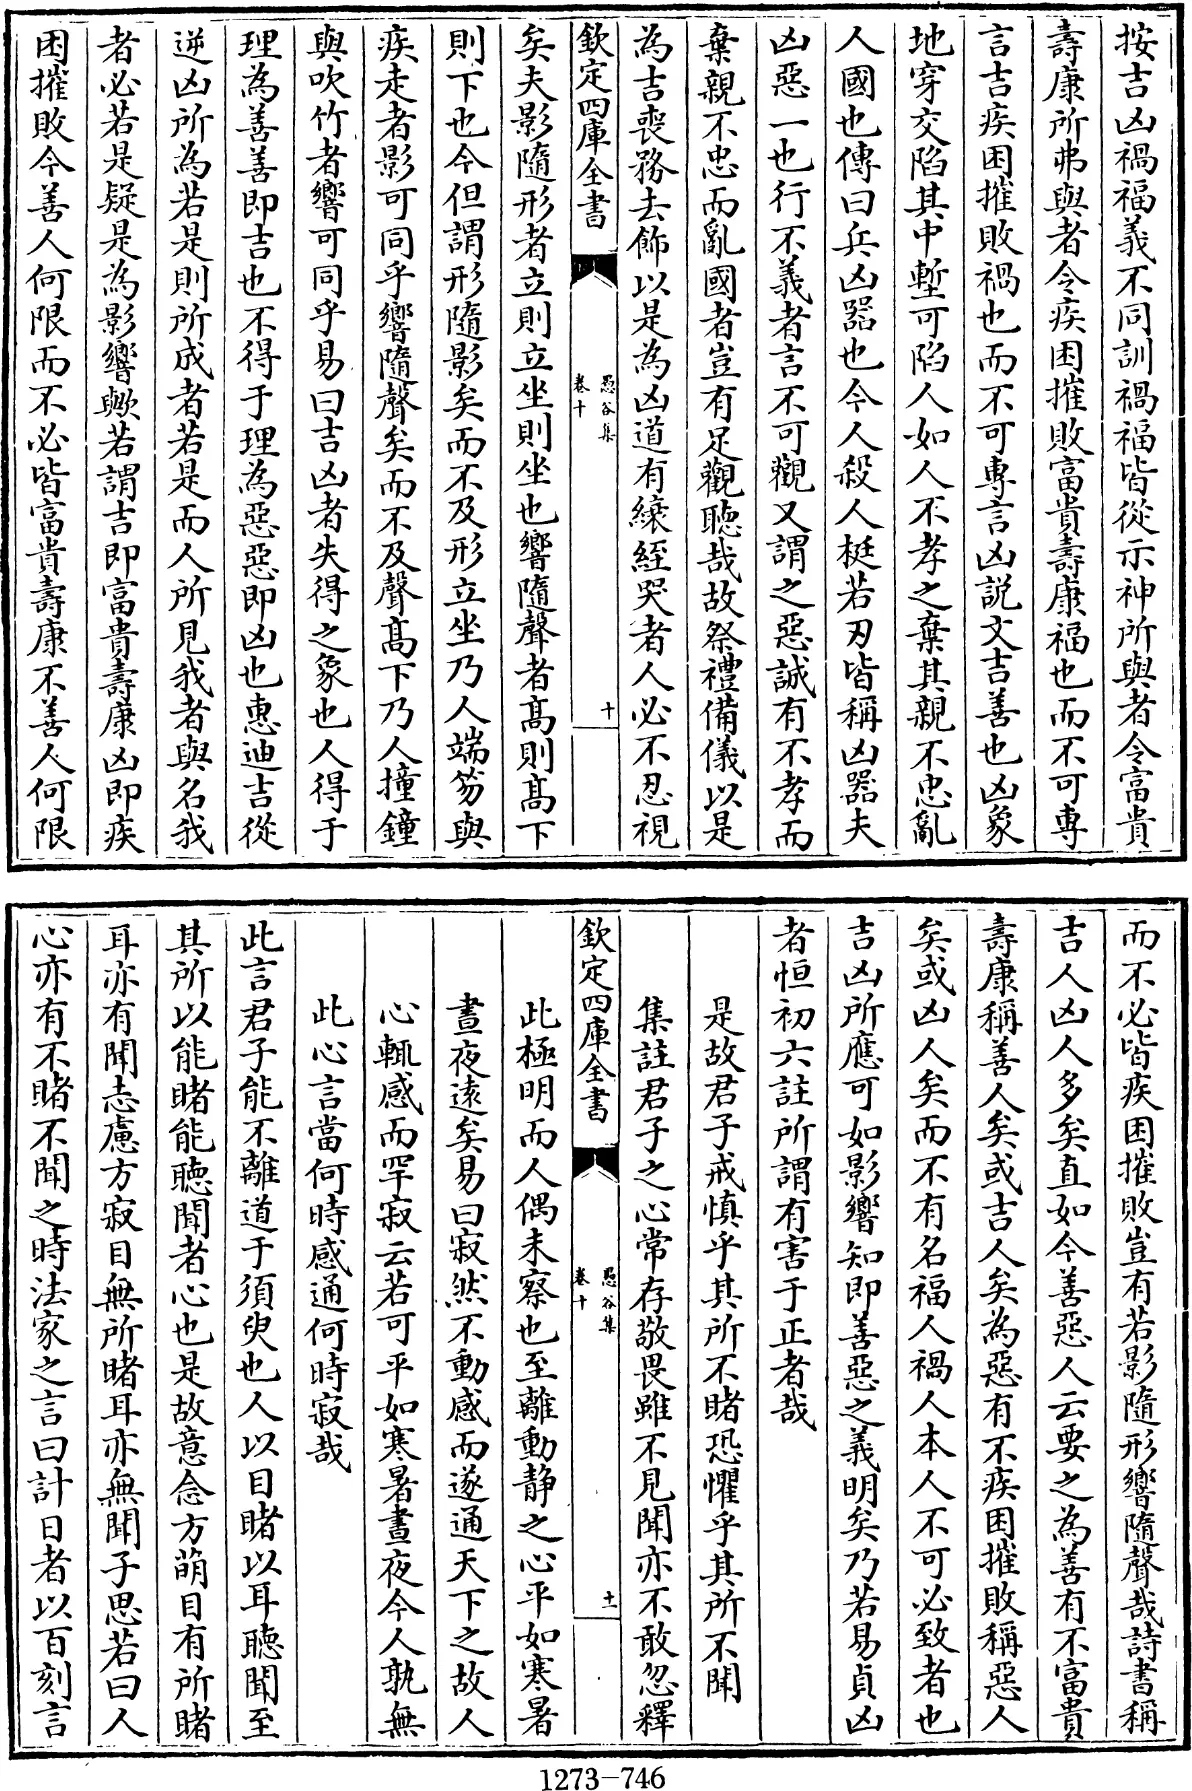 按吉凶禍福義不同訓禍福皆從示神所與者令富貴
壽康所弗與者令疾困摧敗富貴壽康福也而不可專
言吉疾困摧敗禍也而不可專言凶説文吉善也凶象
地穿交陷其中塹可陷人如人不孝之棄其親不忠亂
人國也傳曰兵凶器也今人殺人梃若刃皆稱凶器夫
凶惡一也行不義者言不可觀又謂之惡誠有不孝而
棄親不忠而亂國者豈有足觀聽哉故祭禮備儀以是
為吉喪務去飾以是為凶道有縗絰哭者人必不忍視
欽定四庫全書
愚谷集
卷十
十
矣夫影隨形者立則立坐則坐也響隨聲者髙則髙下
則下也今但謂形隨影矣而不及形立坐乃人端笏與
疾走者影可同乎響隨聲矣而不及聲髙下乃人撞鐘
與吹竹者響可同乎易曰吉凶者失得之象也人得于
理為善善即吉也不得于理為惡惡即凶也惠迪吉從
逆凶所為若是則所成者若是而人所見我者與名我
者必若是疑是為影響歟若謂吉即富貴壽康凶即疾
困摧敗今善人何限而不必皆富貴壽康不善人何限
而不必皆疾困摧敗豈有若影隨形響隨聲哉詩書稱
吉人凶人多矣直如今善惡人云要之為善有不富貴
壽康稱善人矣或吉人矣為惡有不疾困摧敗稱惡人
矣或凶人矣而不有名福人禍人本人不可必致者也
吉凶所應可如影響知即善惡之義明矣乃若易貞凶
者恒初六註所謂有害于正者哉
是故君子戒慎乎其所不睹恐懼乎其所不聞
集註君子之心常存敬畏雖不見聞亦不敢忽釋
欽定四庫全書
愚谷集
卷十
十一
此極明而人偶未察也至離動静之心平如寒暑
晝夜遠矣易曰寂然不動感而遂通天下之故人
心輒感而罕寂云若可平如寒暑晝夜今人孰無
此心言當何時感通何時寂哉
此言君子能不離道于須臾也人以目睹以耳聽聞至
其所以能睹能聽聞者心也是故意念方萌目有所睹
耳亦有聞志慮方寂目無所睹耳亦無聞子思若曰人
心亦有不睹不聞之時法家之言曰計日者以百刻言
1273—746